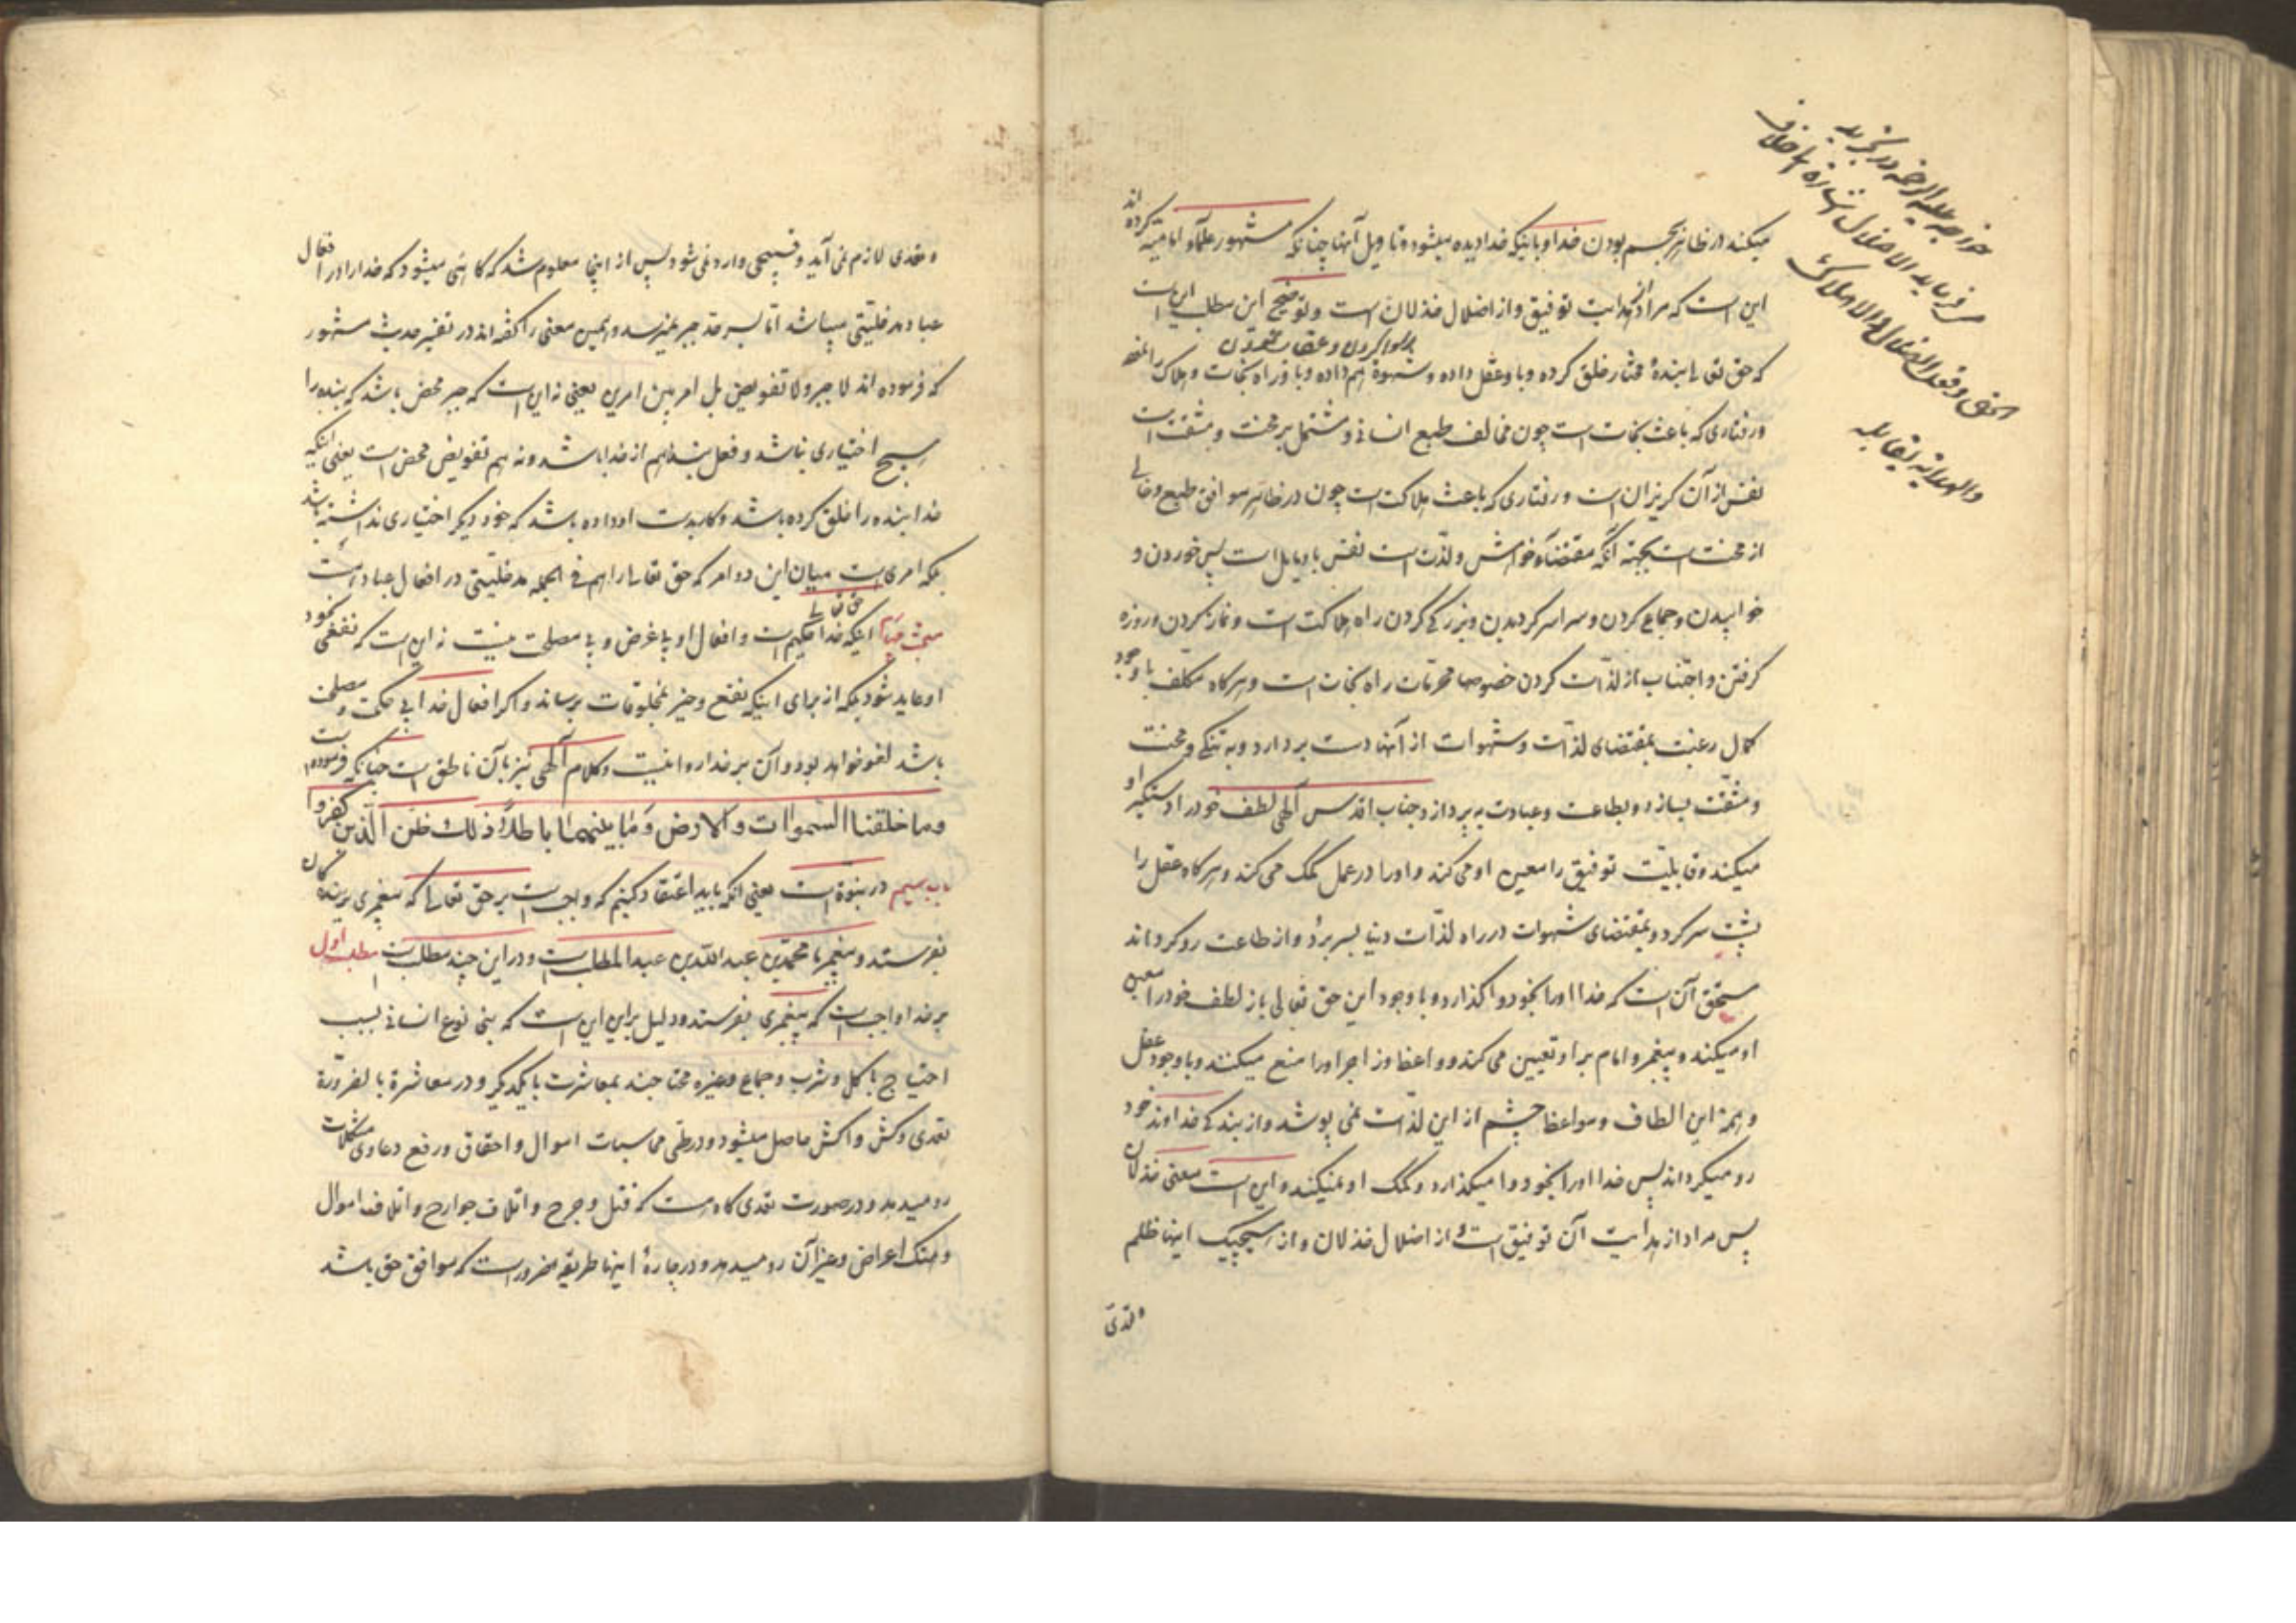 میکند در ظاهر بجسم بودن خدا و باینکه خدا دیده میشود و تاویل آنها چنانکه مشهور علمآء امامیّه کرده‌اند
این است که مراد از هدایت توفیق و از اضلال خذلان است و توضیح این مطلب این است
که حق تعالی بنده مختار خلق کرده و باو عقل داده و شهوة هم داده و باو راه نجات و هلاکت
و رفتاری که باعث نجات است چون مخالف طبع انسانی و مشتمل بر محنت و مشقت است
نفس از آن گریزان است و رفتاری که باعث هلاکت است چون در ظاهر موافق طبع و خالی
از محنت است بجهته آنکه مقتضآء خواهش و لذّت است نفس باو مایل است پس خوردن و
خوابیدن و جماع کردن و سراسر کردیدن و بزرگی کردن راه هلاکت است و نماز کردن و روزه
گرفتن و اجتناب از لذّات کردن خصوصا محرّمات راه نجات است و هرگاه مکلف با وجود
کمال رغبت بمقتضای لذّات و شهوات از آنها دست بردارد و به تنگی و محنت
و مشقّت بسازد و بطاعت و عبادت به پردازد جناب اقدس آلهی لطف خود را دستگیر او
میکند و قابلیّت توفیق را معین او می کند و او را در عمل کمک می کند و هرگاه عقل را
پشت سر کرد و بمقتضای شهوات در راه لذّات دنیا بسر برد و از طاعت رو کرداند
مستحق آن است که خدا او را بخود واگذارد و با وجود این حق تعالی باز لطف خود را معین
او میکند و پیغمبر و امام بر او تعیین می کند و واعظ و زاجر او را منع میکنند و با وجود عقل
و همهٔ این الطاف و مواعظ چشم از این لذّت نمی پوشد و از بندگی خداوند خود
رو میکرداند پس خدا او را بخود وا میگذارد و کمک او نمیکند و این است معنی خذلان
پس مراد از هدایت آن توفیق است و از اضلال خذلان و از هیچیک اینها ظلم
و تعدی لازم نمی آید و قبیحی وارد نمی شود پس از اینجا معلوم شد که کاهی میشود که خدا را در افعال
عباد مدخلیتی میباشد امّا بسر حد جبر نمیرسد و همین معنی را گفته اند در تفسیر حدیث مشهور
که فرموده اند لا جبر و لا تفویض بل امر بین امرین یعنی نه این است که جبر محض باشد که بنده را
هیچ اختیاری نباشد و فعل بنده هم از خدا باشد و نه هم تفویض محض است یعنی اینکه
خدا بنده را خلق کرده باشد و کار بدست او داده باشد که خود دیگر اختیاری نداشته باشد
بلکه امری است میان این دو امر که حق تعالی را هم فی الجمله مدخلیتی در افعال عباد است
مبحث چهارم اینکه خدا حق تعالی حکیم است و افعال او بی غرض و بی مصلحت نیست نه این است که نفعی بخود
او عاید شود بلکه از برای اینکه نفع و خیر بمخلوقات برساند و اگر افعال خدا بی حکمت و مصلحت
باشد لغو خواهد بود و آن بر خدا روا نیست و کلام آلهی نیز بآن ناطق است چنانکه فرموده است
وما خلقنا السّموات والارض وما بینهما باطلاً ذلك ظن الّذین کفروا
باب سیم در نبوّة است یعنی آنکه باید اعتقاد کنیم که واجب است بر حق تعالی که پیغمبری ببندگان
بفرستد و پیغمبر ما محمّد بن عبد الله بن عبد المطلب است و در این چند مطلب است مطلب اول
بر خدا واجب است که پیغمبری بفرستد و دلیل بر این این است که بنی نوع انسانی بسبب
احتیاج باکل و شرب و جماع و غیره محتاجند بمعاشرت با یکدیگر و در معاشرة بالضرورة
تعدی و کش واکش حاصل میشود و در طی محاسبات اموال و احقاق و رفع دعاوی مشکلات
رو میدهد و در صورت تعدی گاه هست که قتل و جرح و اتلاف جوارح و اتلاف اموال
و هتک اعراض و غیر آن رو میدهد و در چارهٔ اینها طریقه ضرور است که موافق حق باشد